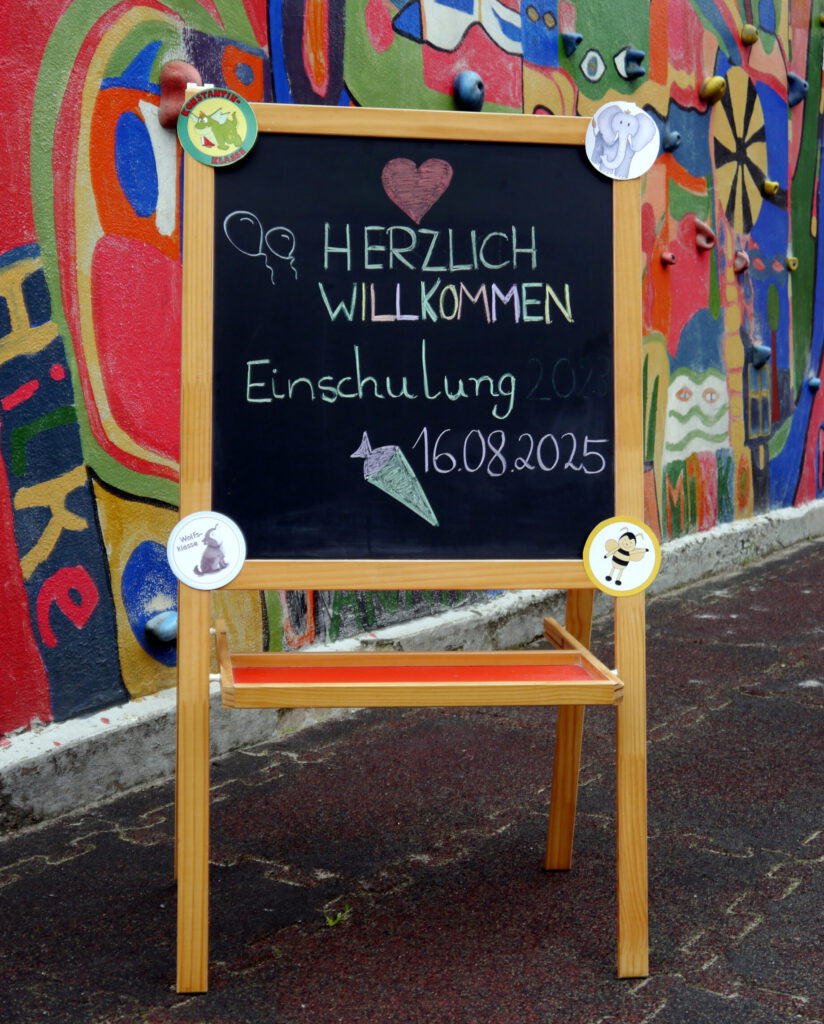 KONSTANTIN-
KLASSE
HERZLICH
WILLKOMMEN
Einschulung
16.08.2025
Wolfs-
klasse
Hilke